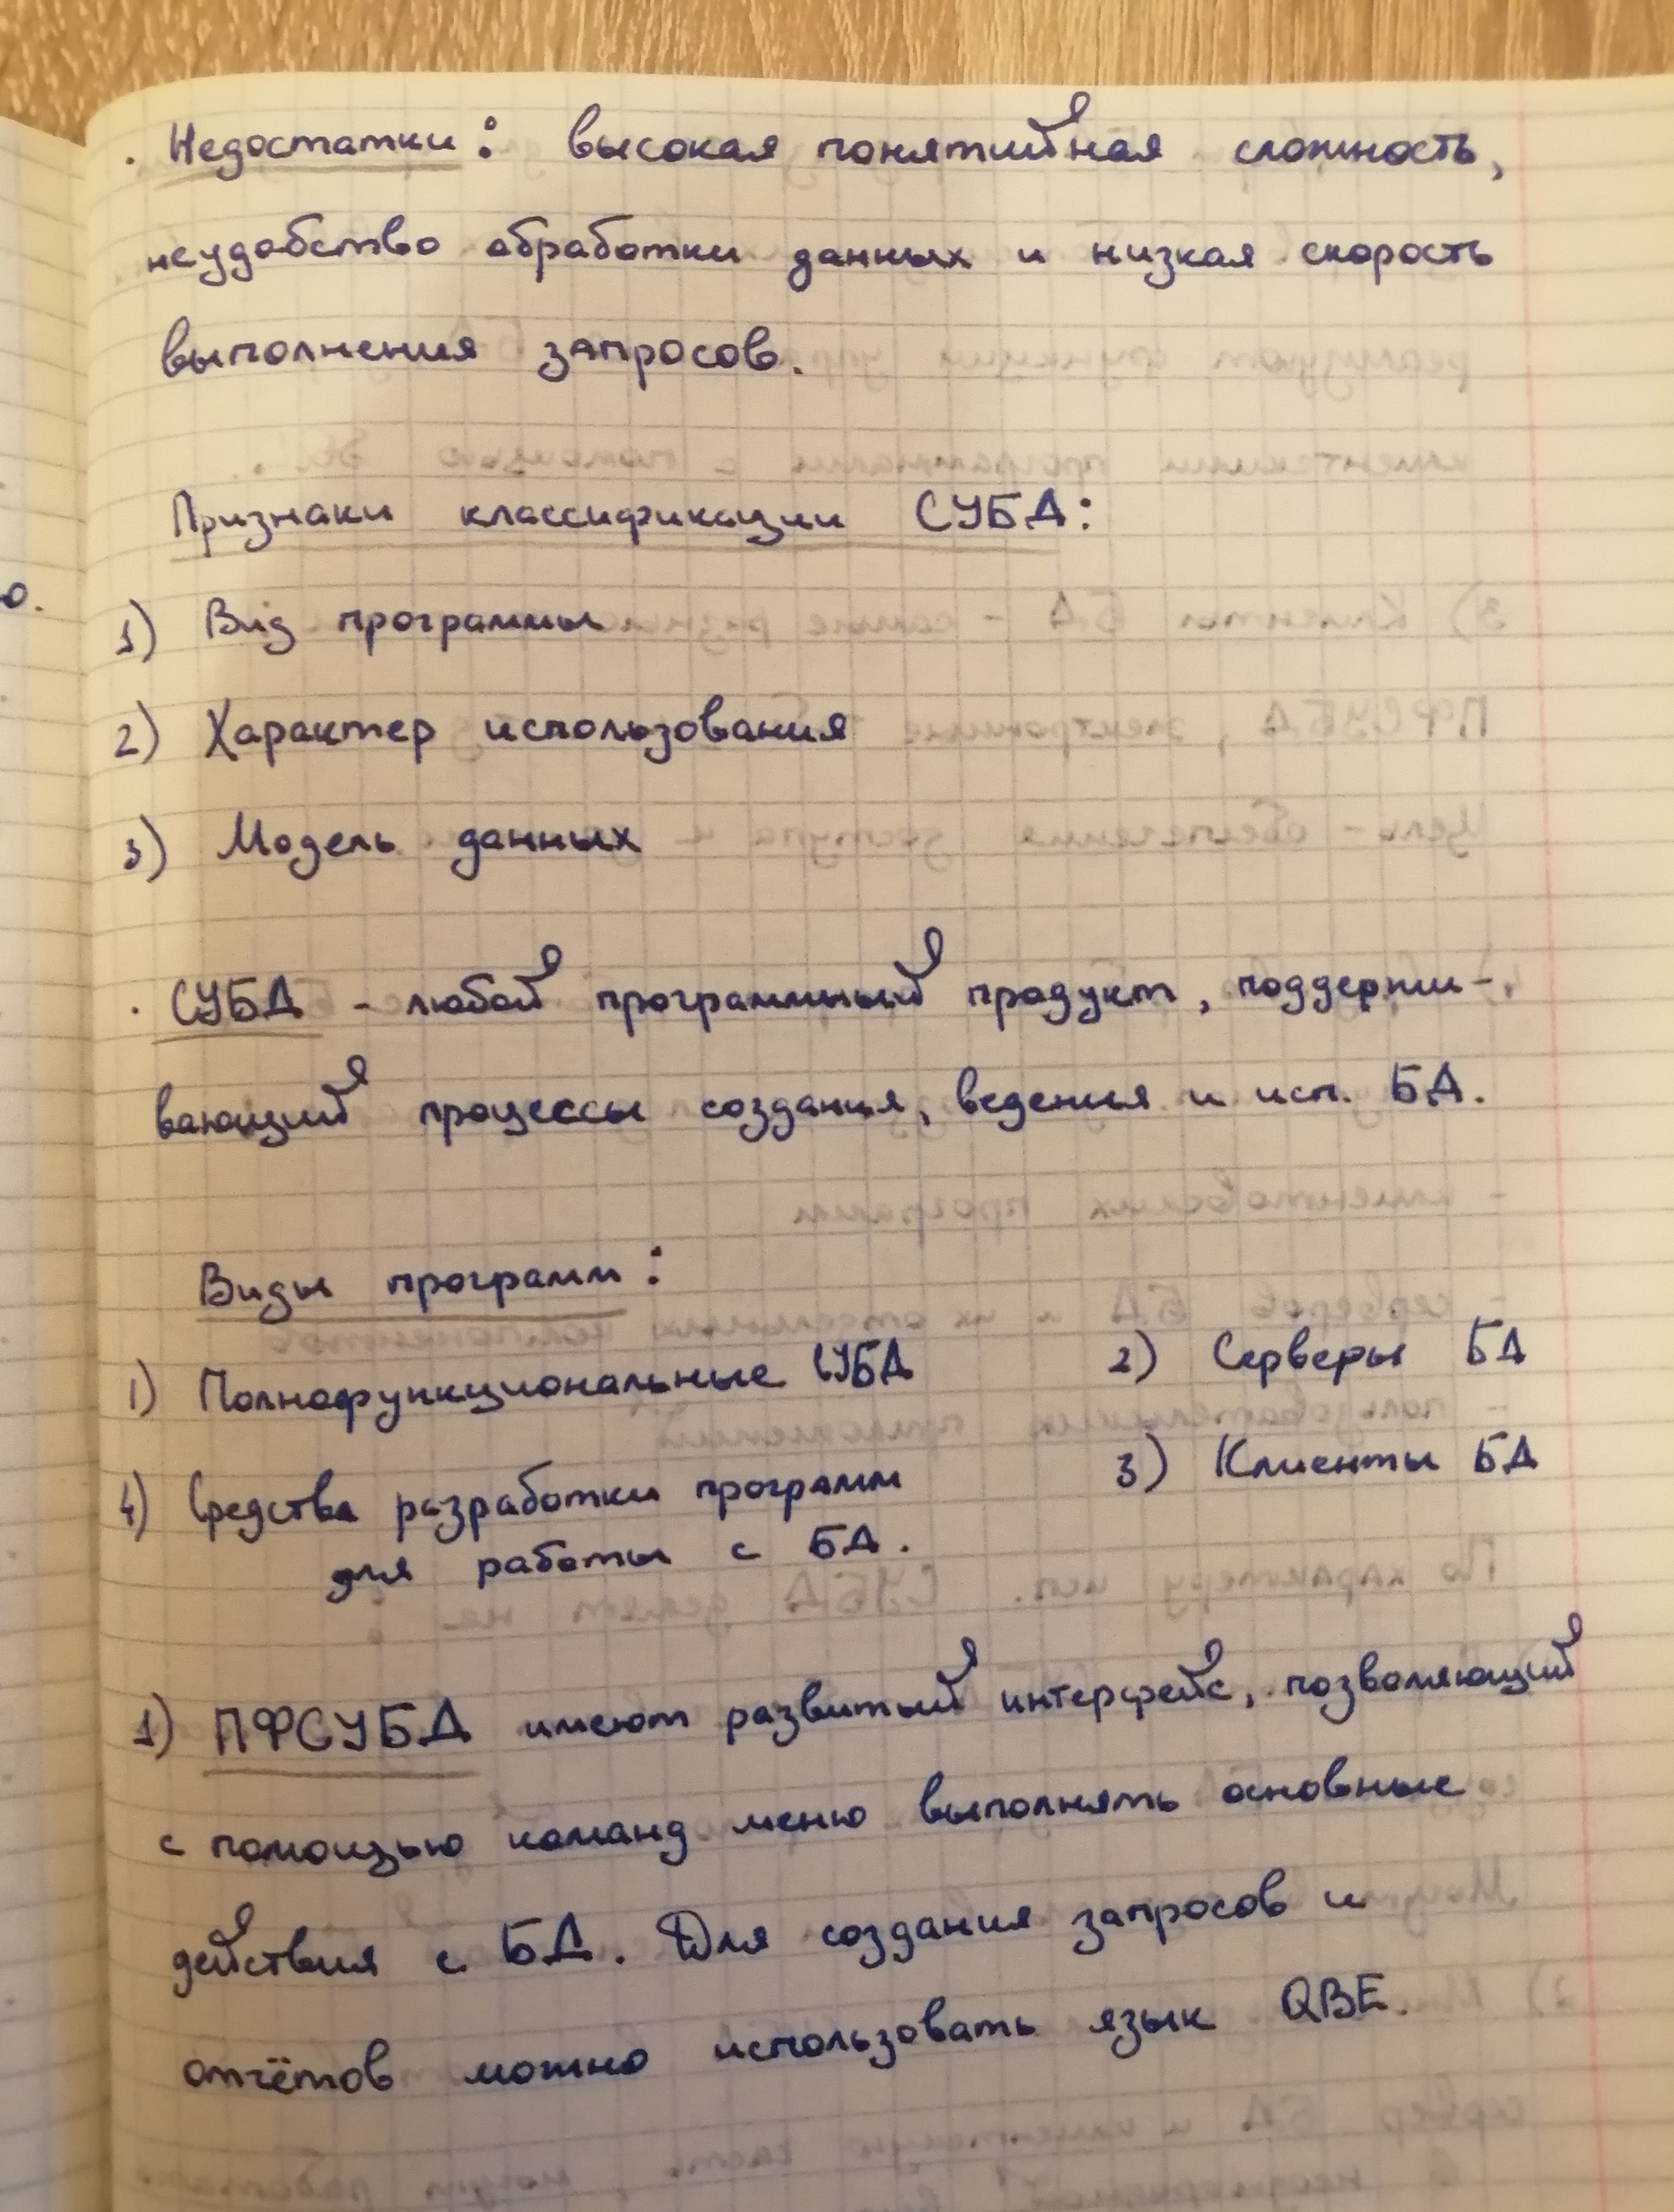 · Недостатки: высокая понятийная сложность,
неудобство обработки данных и низкая скорость
выполнения запросов.
Признаки классификации СУБД:
1) Вид программы
2) Характер использования
3) Модель данных
· СУБД - любой программный продукт, поддержи-
вающий процессы создания, ведения и исп. БД.
Виды программ:
1) Полнофункциональные СУБД
2) Серверы БД
3) Клиенты БД
4) Средства разработки программ
для работы с БД.
1) ПФСУБД имеют развитый интерфейс, позволяющий
с помощью команд меню выполнять основные
действия с БД. Для создания запросов и
отчётов можно использовать язык QBE.